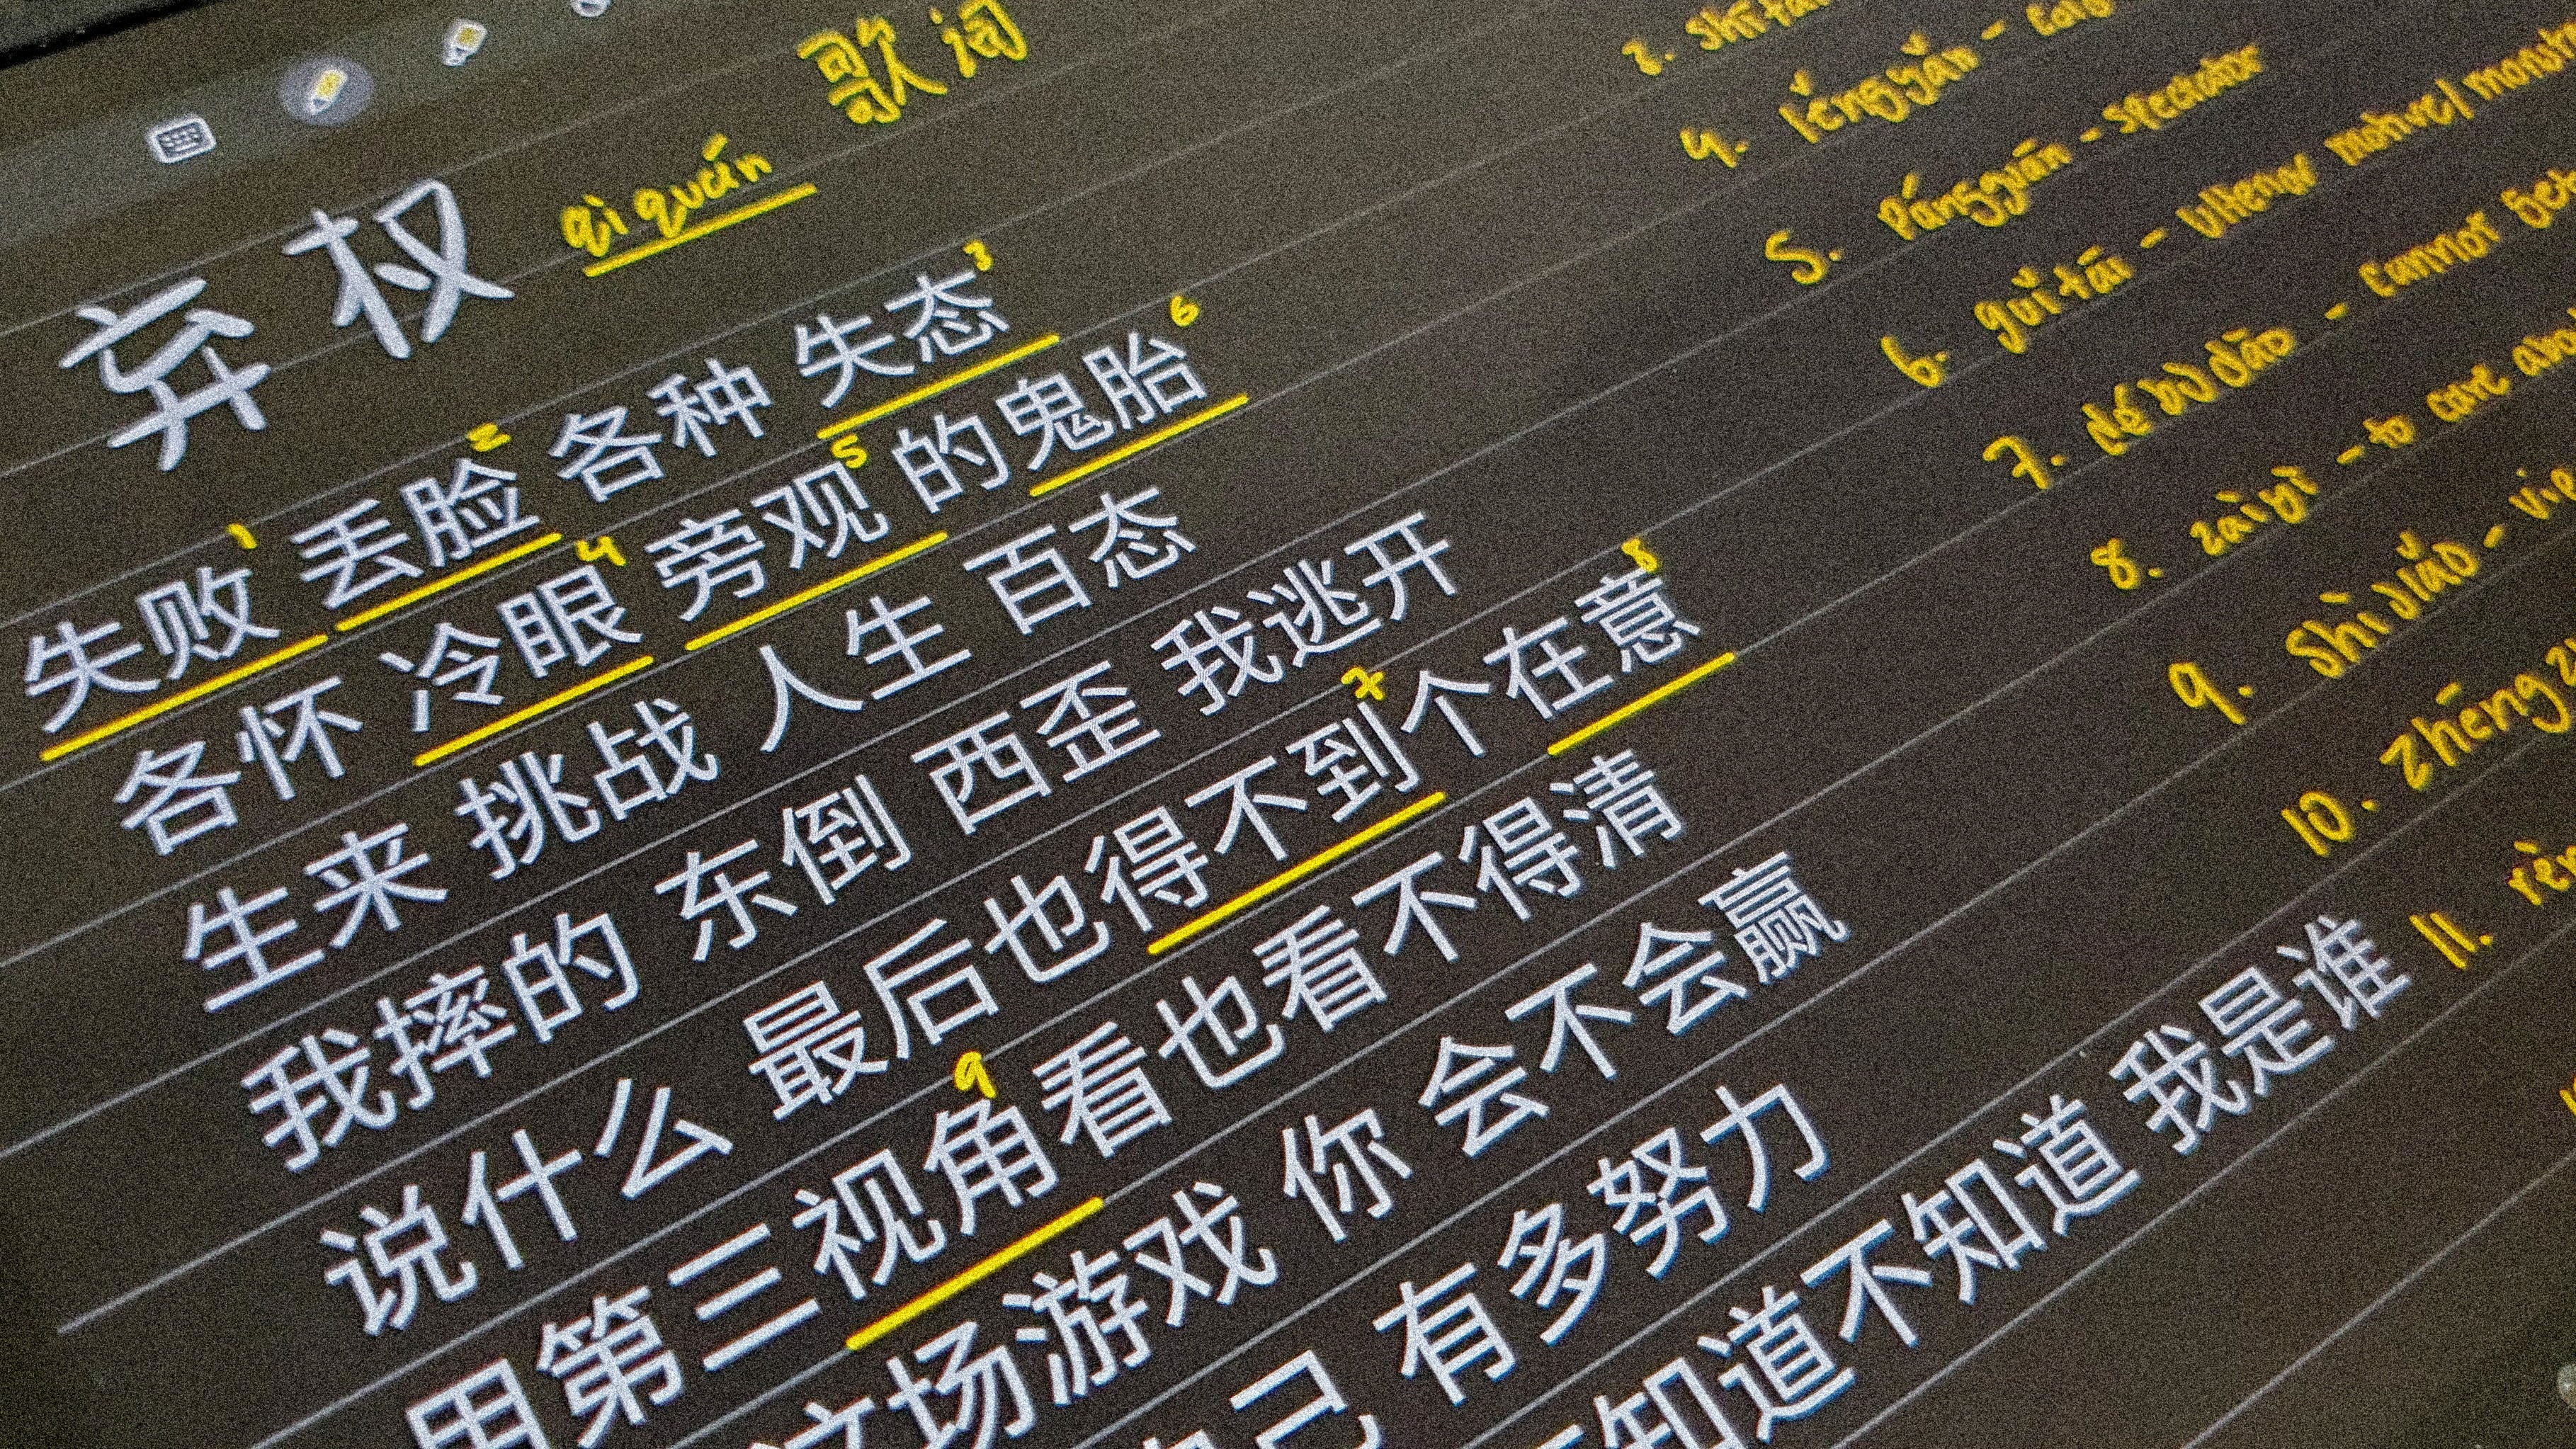 歌词
弃权 qì quán
失败¹ 丢脸² 各种 失态³
各怀 冷眼⁴ 旁观⁵ 的鬼胎⁶
生来 挑战 人生 百态
我摔的 东倒 西歪 我逃开
说什么 最后也得不到⁷个在意⁸
用第三视角⁹看也看不得清
这场游戏 你 会不会赢
自己 有多努力
知道不知道 我是谁
4. lěngyǎn -
5. Pángguān - spectator
6. guǐtāi - ulterior motive/
7. dé bù dào - cannot
8. zàiyì - to care
9. Shì Jiǎo -
10.
11.